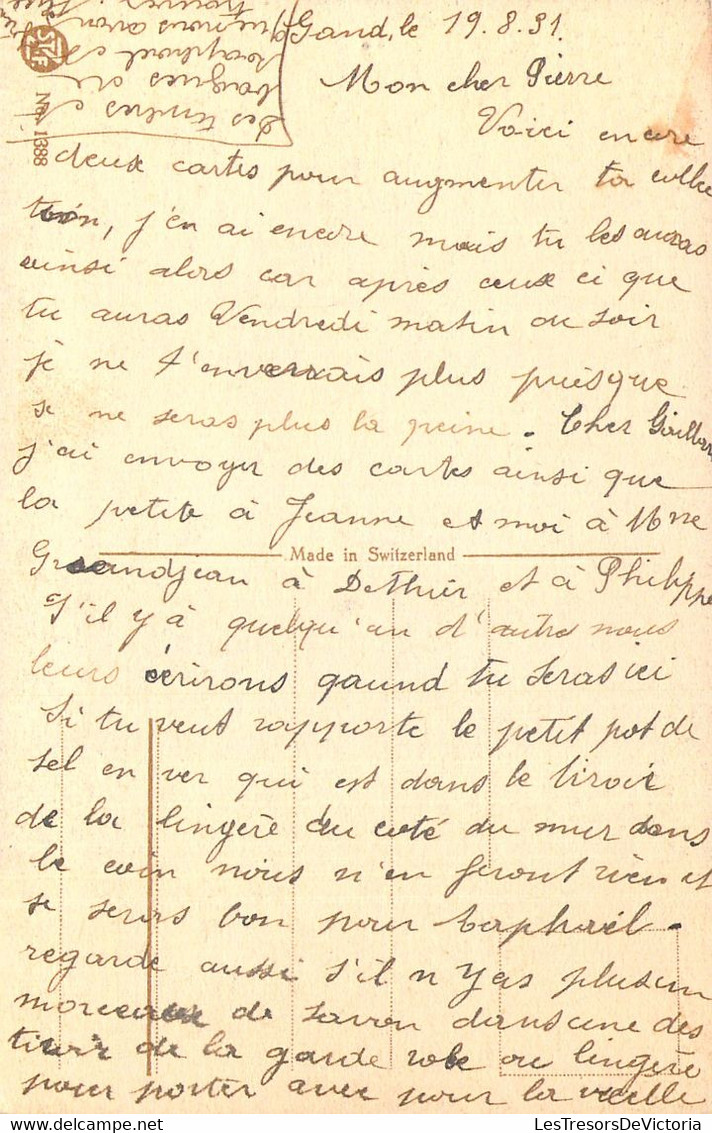 Gand, le 19.8.31.
Mon cher Pierre
Voici encore
deux cartes pour augmenter ta collec
tion, j'en ai encore mais tu les auras
ainsi alors car après ceux ci que
tu auras Vendredi matin ou soir
je ne t'enverrais plus puisque
se ne seras plus la peine. Cher
j'ai envoyer des cartes ainsi que
la petite à Jeanne et moi à Mme
Grandjean à Dethier et à Philippe
S'il y à quelqu'un d'autre nous
leurs écrirons qaund tu seras ici
Si tu veut rapporte le petit pot de
sel en ver qui est dans le tiroir
de la lingère du coté du mur dans
le coin nous n'en feront rien et
se seras bon pour Raphaël.
regarde aussi s'il n'y as plus un
morceaux de savon dans une des
tiroir de la garde robe ou lingère
pour porter avec pour la vielle
Des tendres et
longues de
Raphaël et
nous avon
No. 1388
STZF
Made in Switzerland
LesTresorsDeVictoria